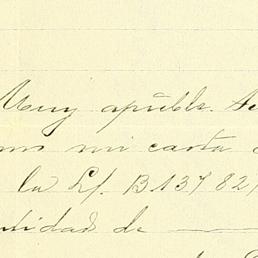 Muy apreble. Se
mi carta
la L/. B. 13782,
ntidad de